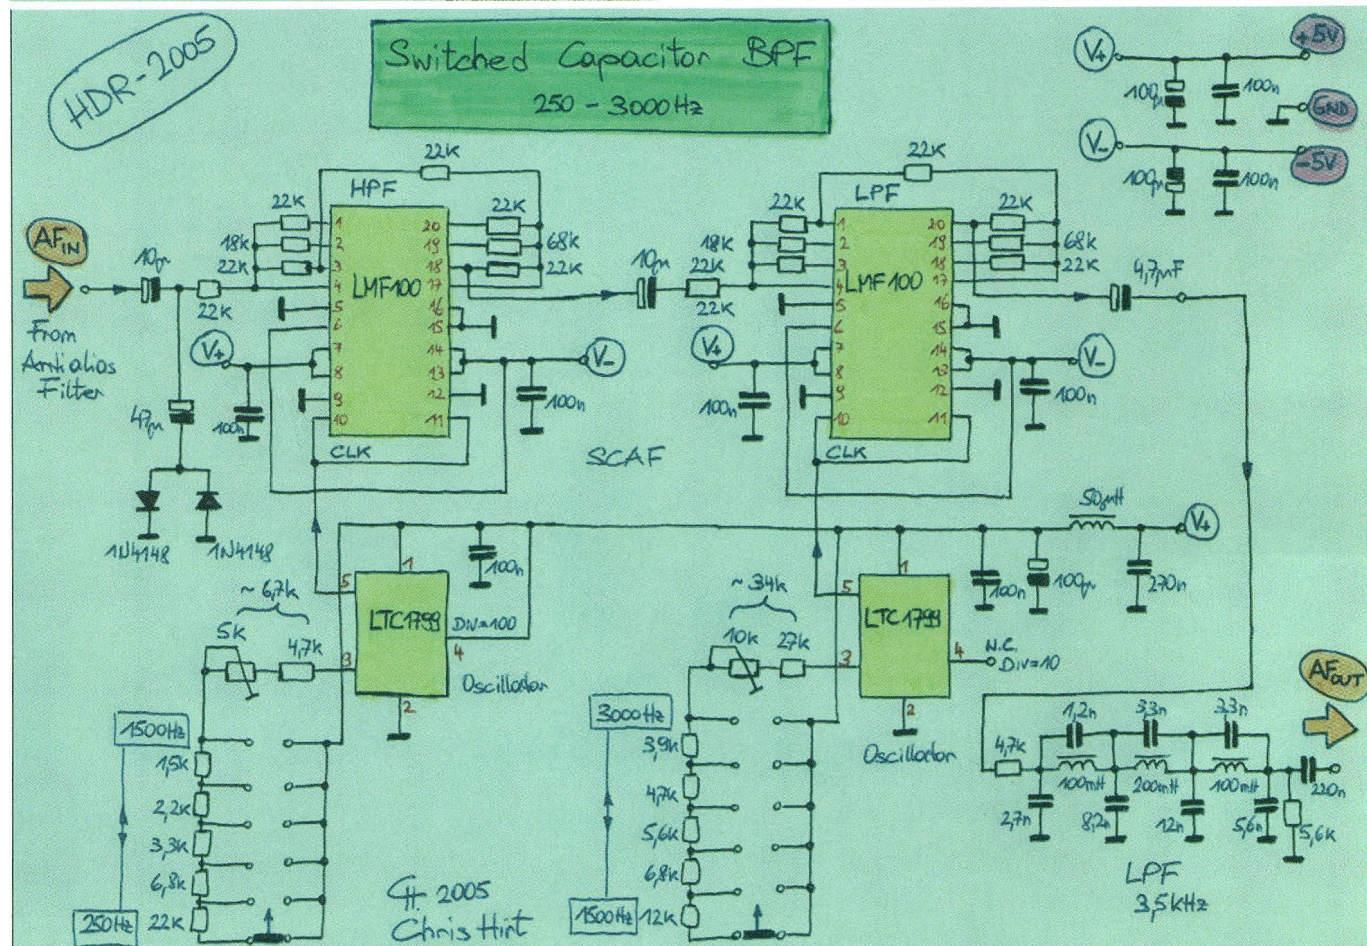 HDR-2005
Switched Capacitor BPF
250 - 3000Hz
V+
+5V
100µ
100n
GND
V-
-5V
100µ
100n
AF IN
From
Antialias
Filter
10µ
22k
47µ
1N4148
1N4148
22k
HPF
22k
18k
22k
LMF100
1
2
3
4
5
6
7
8
9
10
20
19
18
17
16
15
14
13
12
11
22k
68k
22k
V+
100n
V-
100n
CLK
SCAF
10µ
22k
22k
22k
LPF
22k
18k
LMF100
1
2
3
4
5
6
7
8
9
10
20
19
18
17
16
15
14
13
12
11
22k
68k
22k
4,7µF
V+
100n
V-
100n
CLK
50µH
V+
100n
100µ
270n
100n
~ 6,7k
5k
4,7k
LTC1799
5
1
3
4
2
Div=100
Oscillator
1500Hz
1,5k
2,2k
3,3k
6,8k
22k
250Hz
~ 34k
10k
27k
LTC1799
5
1
3
4
2
N.C.
Div=10
Oscillator
3000Hz
3,9k
4,7k
5,6k
6,8k
12k
1500Hz
AF OUT
4,7k
1,2n
3,3n
3,3n
100mH
200mH
100mH
220n
2,7n
8,2n
12n
5,6n
5,6k
LPF
3,5kHz
CH 2005
Chris Hirt